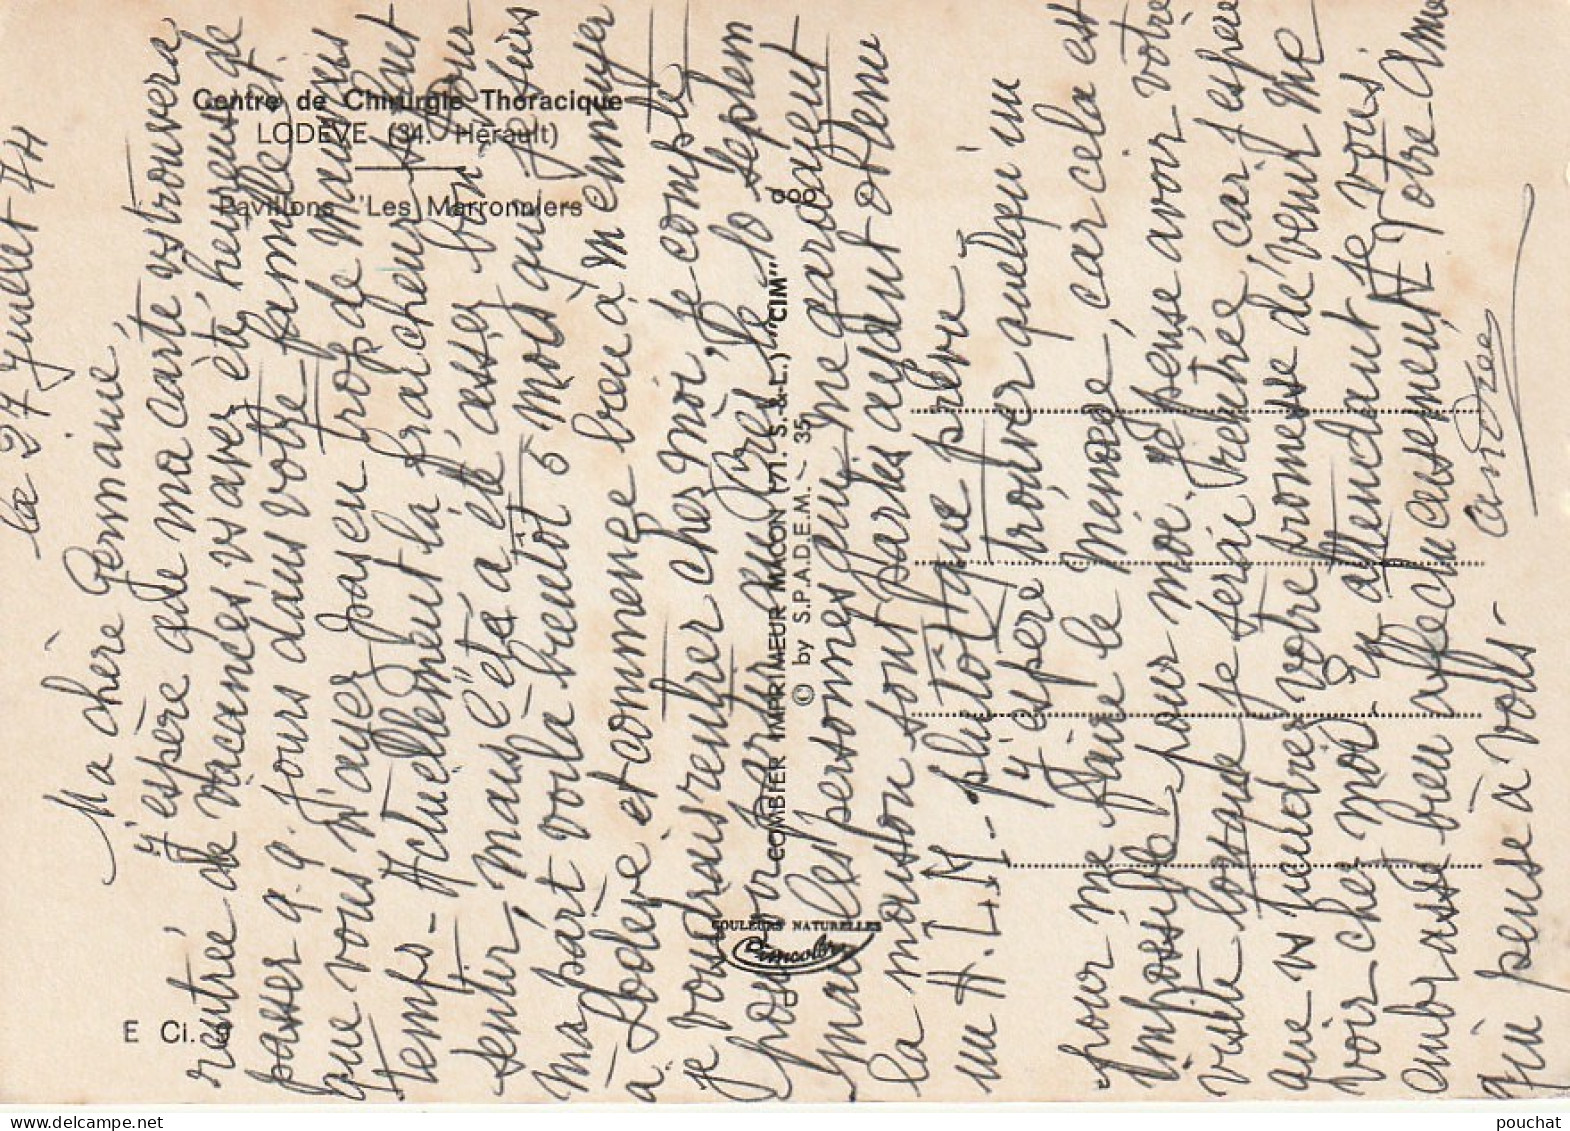 Centre de Chirurgie Thoracique
LODÈVE (34. Hérault)
Pavillons "Les Marronniers"
E Ci. 9
COULEURS NATURELLES
Cimcolor
COMBIER IMPRIMEUR MACON (71. S.-&-L.) "CIM"
© by S.P.A.D.E.M. - 35
le 27 Juillet 74
Ma chère Germaine,
J'espère que ma carte vs trouvera
rentrée de vacances, vs avez été, heureuse de
passer q.q. Jours dans votre famille et
que vous n'ayez pas eu trop de Mauvais
temps - Actuellement la fraîcheur se fait
sentir, mais l'été a été assez bon. Pour
ma part voilà bientôt 5 mois que je suis
à Lodève et commence bien à m'ennuyer
je voudrais rentrer chez moi, je compte
pouvoir au Près le 10 Septem
mais les personnes qui me gardaient
la maison sont parties ayant obtenu
un H.L.M - plutôt que prévu -
J'espère trouver quelqu'un
pour me faire le Ménage, car cela est
impossible pour moi. Je pense avoir votre
visite lorsque je serai rentrée car j'espère
que vs tiendrez votre promesse de venir me
voir chez moi - En attendant je vous
embrasse bien affectueusement Votre Amie
qui pense à vous -
Andrée